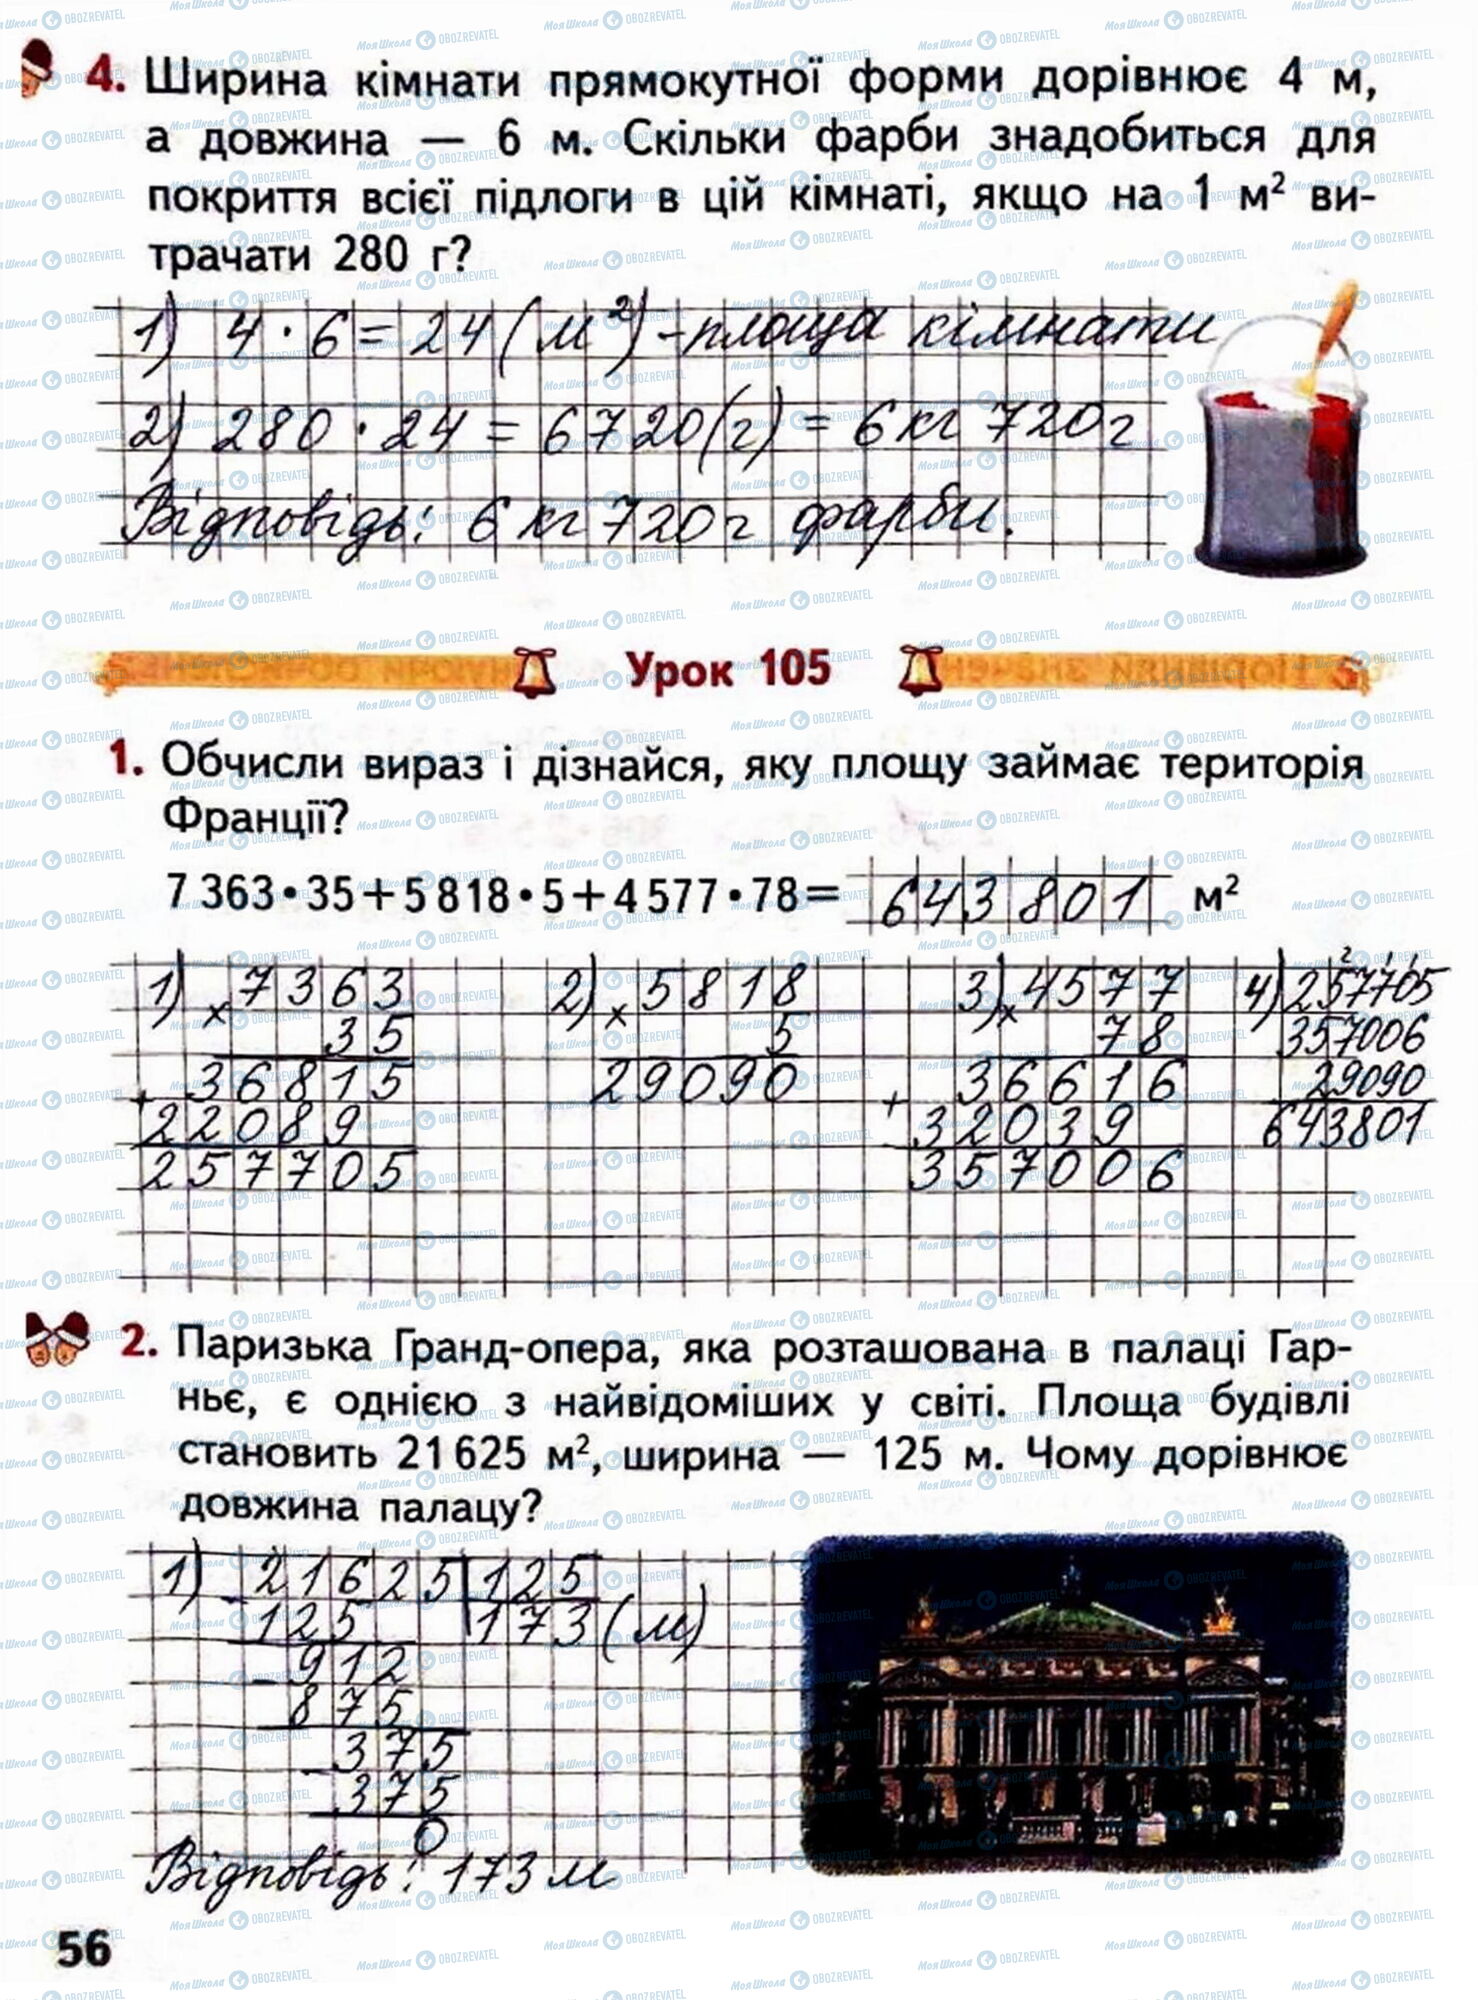 4. Ширина кімнати прямокутної форми дорівнює 4 м,
а довжина — 6 м. Скільки фарби знадобиться для
покриття всієї підлоги в цій кімнаті, якщо на 1 м² ви-
трачати 280 г?
1) 4 · 6 = 24 (м²) - площа кімнати
2) 280 · 24 = 6720 (г) = 6 кг 720 г
Відповідь: 6 кг 720 г фарби.
Урок 105
1. Обчисли вираз і дізнайся, яку площу займає територія
Франції?
7 363 • 35 + 5 818 • 5 + 4 577 • 78 = 643 801 м²
1) 7363 2) 5818 3) 4577 4) 257705
× 35 × 5 × 78 357006
36815 29090 36616 29090
+ 22089 + 32039 643801
257705 357006
2. Паризька Гранд-опера, яка розташована в палаці Гар-
ньє, є однією з найвідоміших у світі. Площа будівлі
становить 21 625 м², ширина — 125 м. Чому дорівнює
довжина палацу?
1) 21625 125
- 125 173 (м)
912
- 875
375
- 375
0
Відповідь: 173 м
56
МояШкола OBOZREVATEL